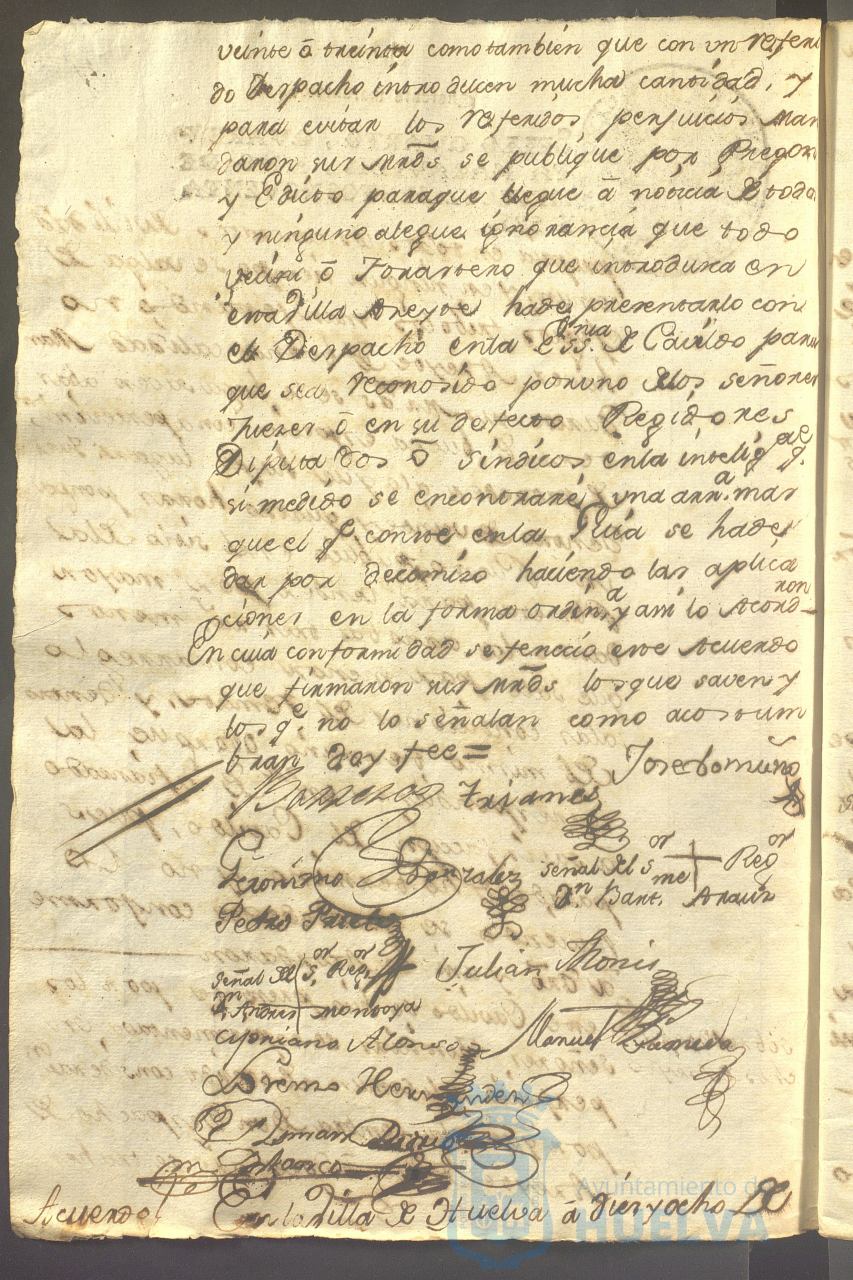 veinte ô treinta como tambien que con un referi
do Despacho introducen mucha cantidad, y
para evitar los referidos perjuicios Man
daron sus Mrds se publique por Pregon
y Edicto para que llegue â noticia de todos
y ninguno alegue ignorancia que todo
vecino ô Forastero que introdusca en
esta Villa Aseyte hade presentarlo con
el Despacho en la Essnia de Cavildo para
que sea reconosido por uno de los señores
Juezes ô en su defecto Regidores
Diputados ô Sindicos en la inteligas qe
si medido se encontrare una arra. mas
que el qe conste en la Guia se hade
dar por decomiso haciendo las aplica
ciones en la forma ordina y assi lo Acordaron
En cuia conformidad se fenecio este Acuerdo
que firmaron sus Mrds los que saven y
los qe no lo señalan como acostum
bran doy fee =
Jose Romero
Barreros Trianes
Geronimo Gonzalez
señal del sor me Regor
Dn Bart. Arauz
Pedro Prieto
señal del sor Regor
Dn Andres Montoya
Julian Monis
Cipriano Alonso
Manuel
Lorenzo Hernandez
Roman
Infanco
Acuerdo
En la Villa de Huelva â diez y ocho de
Ayuntamiento de
HUELVA